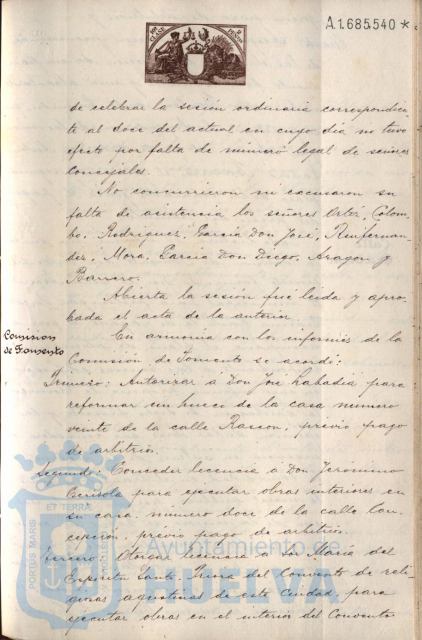 A.1.685.540 *
de celebrar la sesión ordinaria correspondien-
te al doce del actual en cuyo dia no tuvo
efecto por falta de número legal de señores
Concejales.
No concurrieron ni escusaron su
falta de asistencia los señores Ortiz, Colom-
bo, Rodriguez, Garcia Don José, Rui-fernan-
dez, Mora, Garcia Don Diego, Aragon y
Barrero.
Abierta la sesión fué leida y apro-
bada el acta de la anterior.
Comision
de Fomento
En armonia con los informes de la
Comisión de Fomento se acordó:
Primero: Autorizar á Don José Labadia para
reformar un hueco de la casa número
veinte de la calle Rascon, previo pago
de arbitrios.
Segundo: Conceder licencia á Don Jeronimo
para ejecutar obras interiores en
su casa, número doce de la calle Con-
cepcion, previo pago de arbitrios.
Tercero: Otorgar licencia á Sor Maria del
Espiritu Santo, Priora del Convento de reli-
giosas agustinas de esta Ciudad, para
ejecutar obras en el interior del Convento
PORTUS MARIS
ET TERRÆ
CUSTODIA
Ayuntamiento de
HUELVA